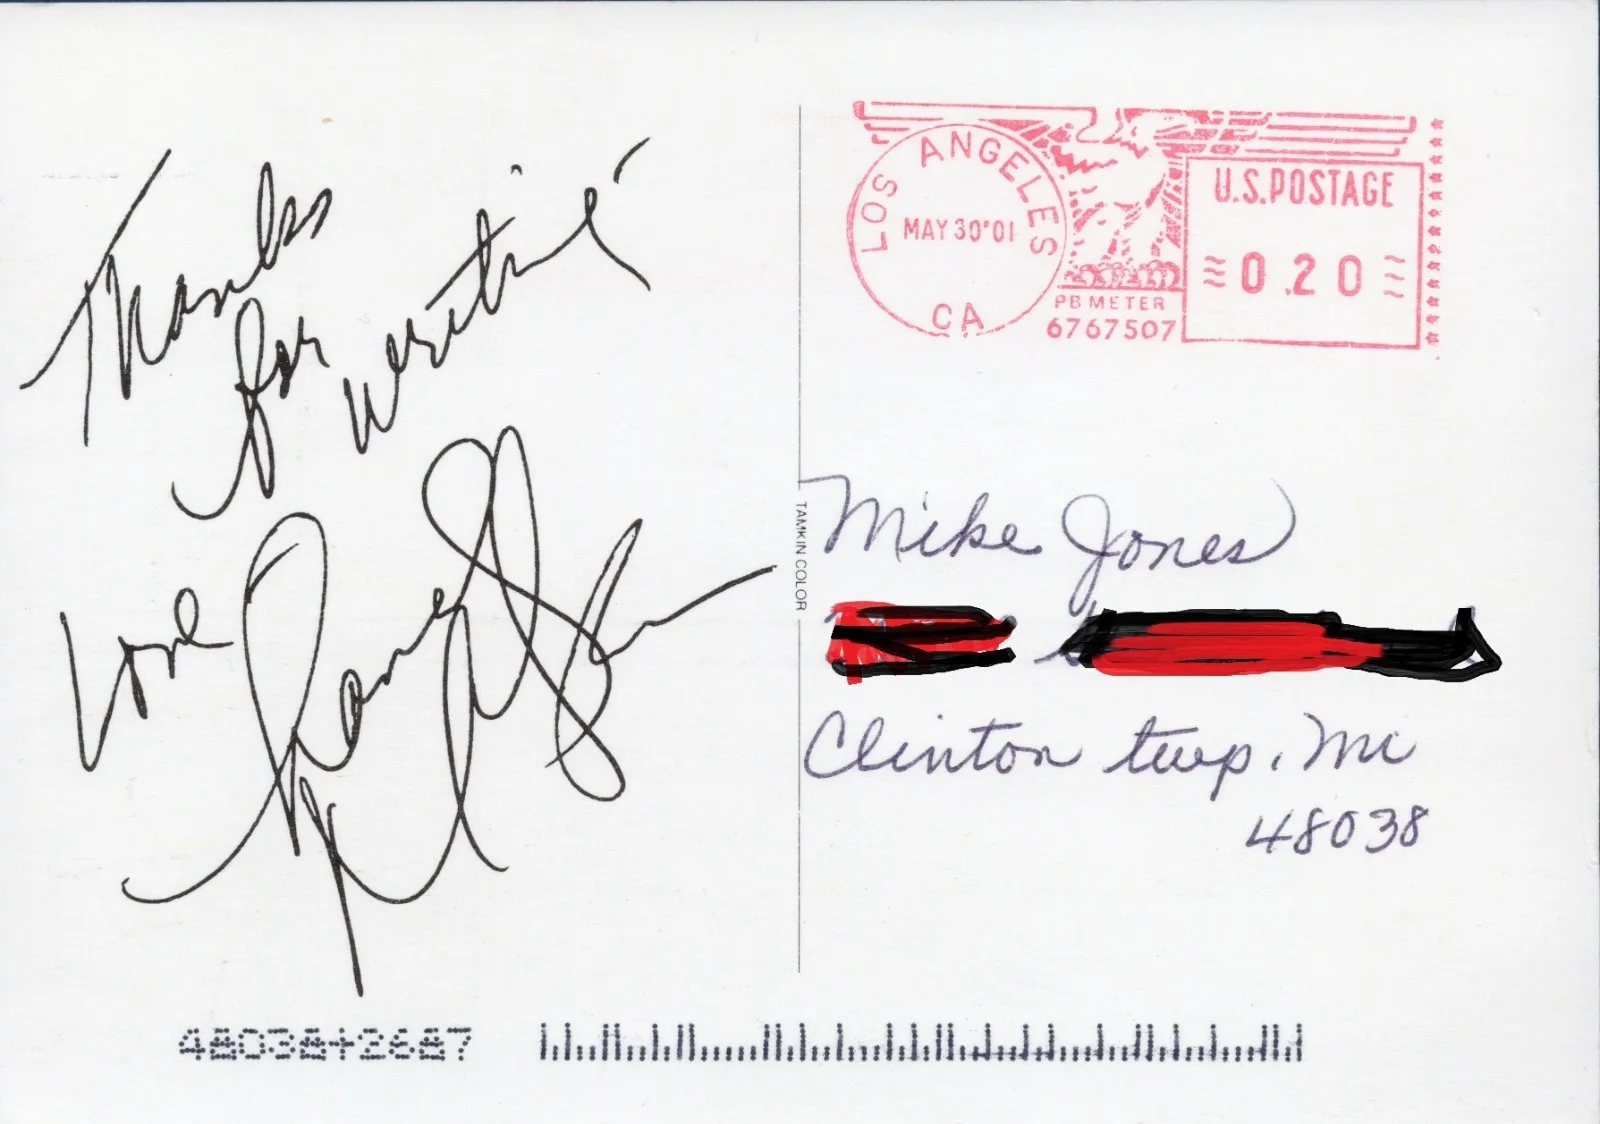 Thanks
for
writin'
Love
LOS ANGELES
MAY 30'01
CA
PB METER
6767507
U.S. POSTAGE
0.20
TAMKIN COLOR
Mike Jones
Clinton twp, Mi
48038
48038+2687